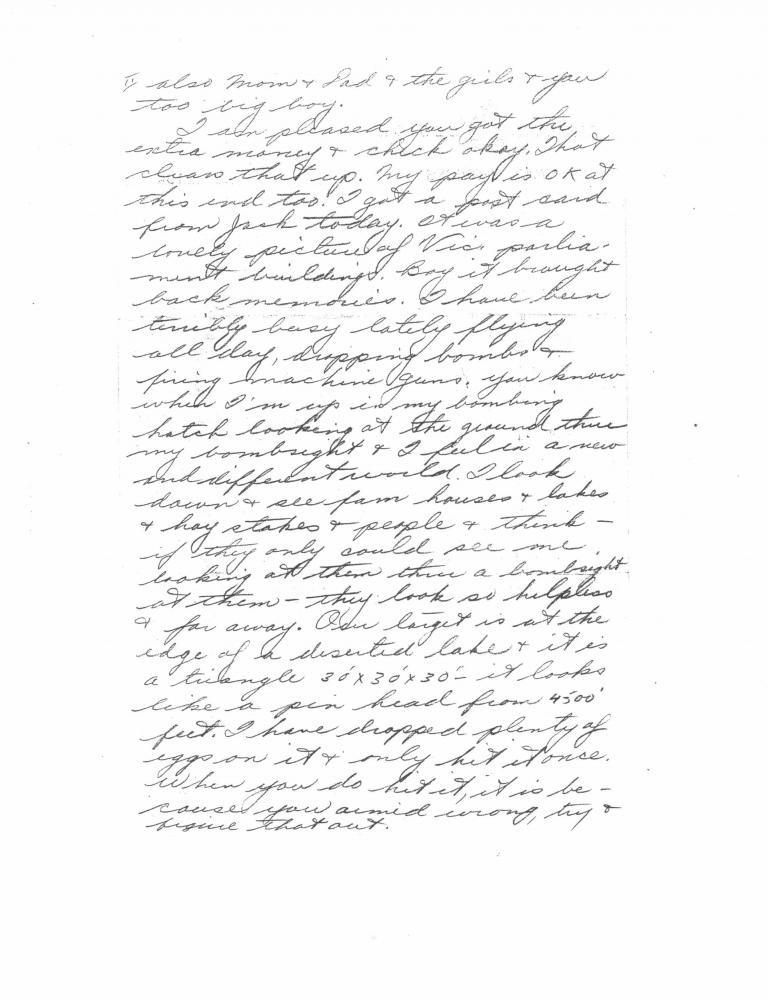 IV also Mom & Dad & the girls & you
too big boy.
I am pleased you got the
extra money & check okay. That
clears that up. My pay is OK at
this end too. I got a post card
from Jack today. It was a
lovely picture of Vic. parlia-
ment buildings. Boy it brought
back memories. I have been
terribly busy lately flying
all day, dropping bombs &
firing machine guns. You know
when I'm up in my bombing
hatch looking at the ground thru
my bombsight & I feel in a new
and different world. I look
down & see farm houses & lakes
& hay stakes & people & think -
if they only could see me
looking at them thru a bombsight
at them - they look so helpless
& far away. Our target is at the
edge of a deserted lake & it is
a triangle 30'x30'x30' - it looks
like a pin head from 4500'
feet. I have dropped plenty of
eggs on it & only hit it once.
When you do hit it, it is be-
cause you aimed wrong, try &
figure that out.